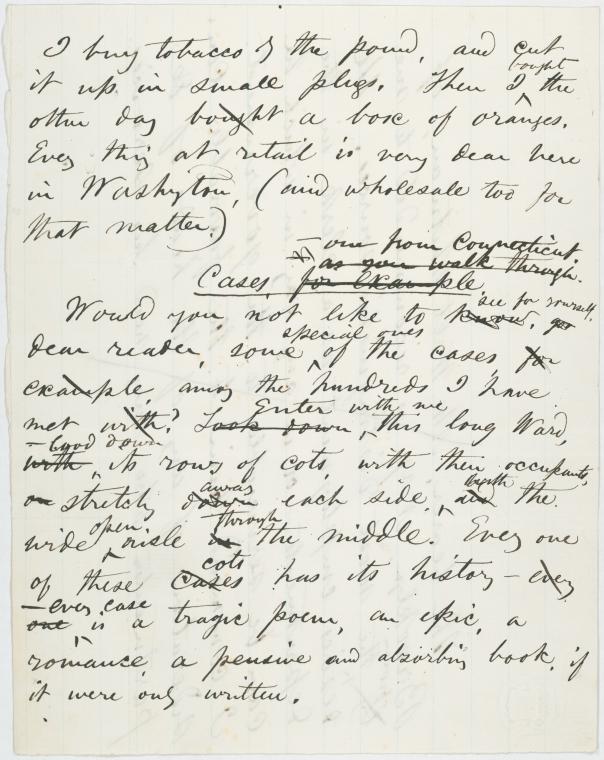 I buy tobacco by the pound, and cut
bought
it up in small plugs. Then I the
other day bought a box of oranges.
Every thing at retail is very dear here
in Washington, (and wholesale too for
that matter.)
– one from Connecticut
as you walk through.
Cases for example
see for yourself,
Would you not like to know,
special ones
dear reader, some of the cases, for
example, among the hundreds I have
Enter with me
met with? Look down, this long Ward,
– look down
with its rows of cots, with their occupants,
away with
or stretch down each side, and the
open through
wide aisle in the middle. Every one
cots
of these cases has its history – every
– every case
one is a tragic poem, an epic, a
romance, a pensive and absorbing book, if
it were only written.